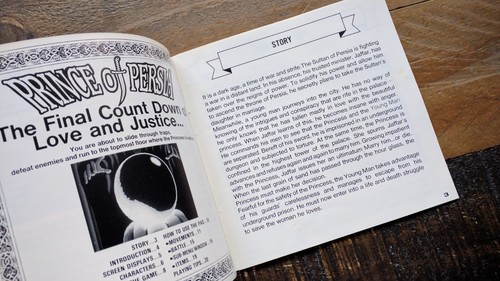 PRINCE of PERSIA
The Final Count Down of
Love and Justice...
You are about to slide through traps,
defeat enemies and run to the topmost floor where the Princess
STORY...3
INTRODUCTION...4
SCREEN DISPLAYS...5
CHARACTERS...6
THE GAME...8
HOW TO USE THE PAD...11
•MOVEMENTS...11
•BATTLE...15
•SUB-MENU WINDOW...17
•ITEMS...19
PLAYING TIPS...20
STORY
It is a dark age, a time of war and strife. The Sultan of Persia is fighting
a war in a distant land. In his absence, his trusted minister, Jaffar, has
taken over the reigns of power. To solidify his power and allow him
to ascend the throne of Persia, he secretly plans to take the Sultan's
daughter in marriage.
Meanwhile, a young man journeys into the city. He has no way of
knowing of the intrigues and conspiracy that are rife in the palace,
he only knows that he has fallen madly in love with the beautiful
princess. When Jaffar learns of this, he becomes insane with anger.
He commands his men to see that the Princess and the Young Man
are separated. Bereft of his sword, he is imprisoned in an underground
dungeon and subjected to torture. At the same time, the Princess is
confined in the highest tower of the palace. She spurns Jaffar's
advances and refuses again and again to marry him. Growing impatient
with the Princess, Jaffar issues her an ultimatum. Marry him, or die.
When the last grain of sand has passed through the hour glass, the
Princess must make her decision.
Fearful for the safety of the Princess, the Young Man takes advantage
of his guards' carelessness and manages to escape from his
underground prison. He must now enter into a life and death struggle
to save the woman he loves.
3